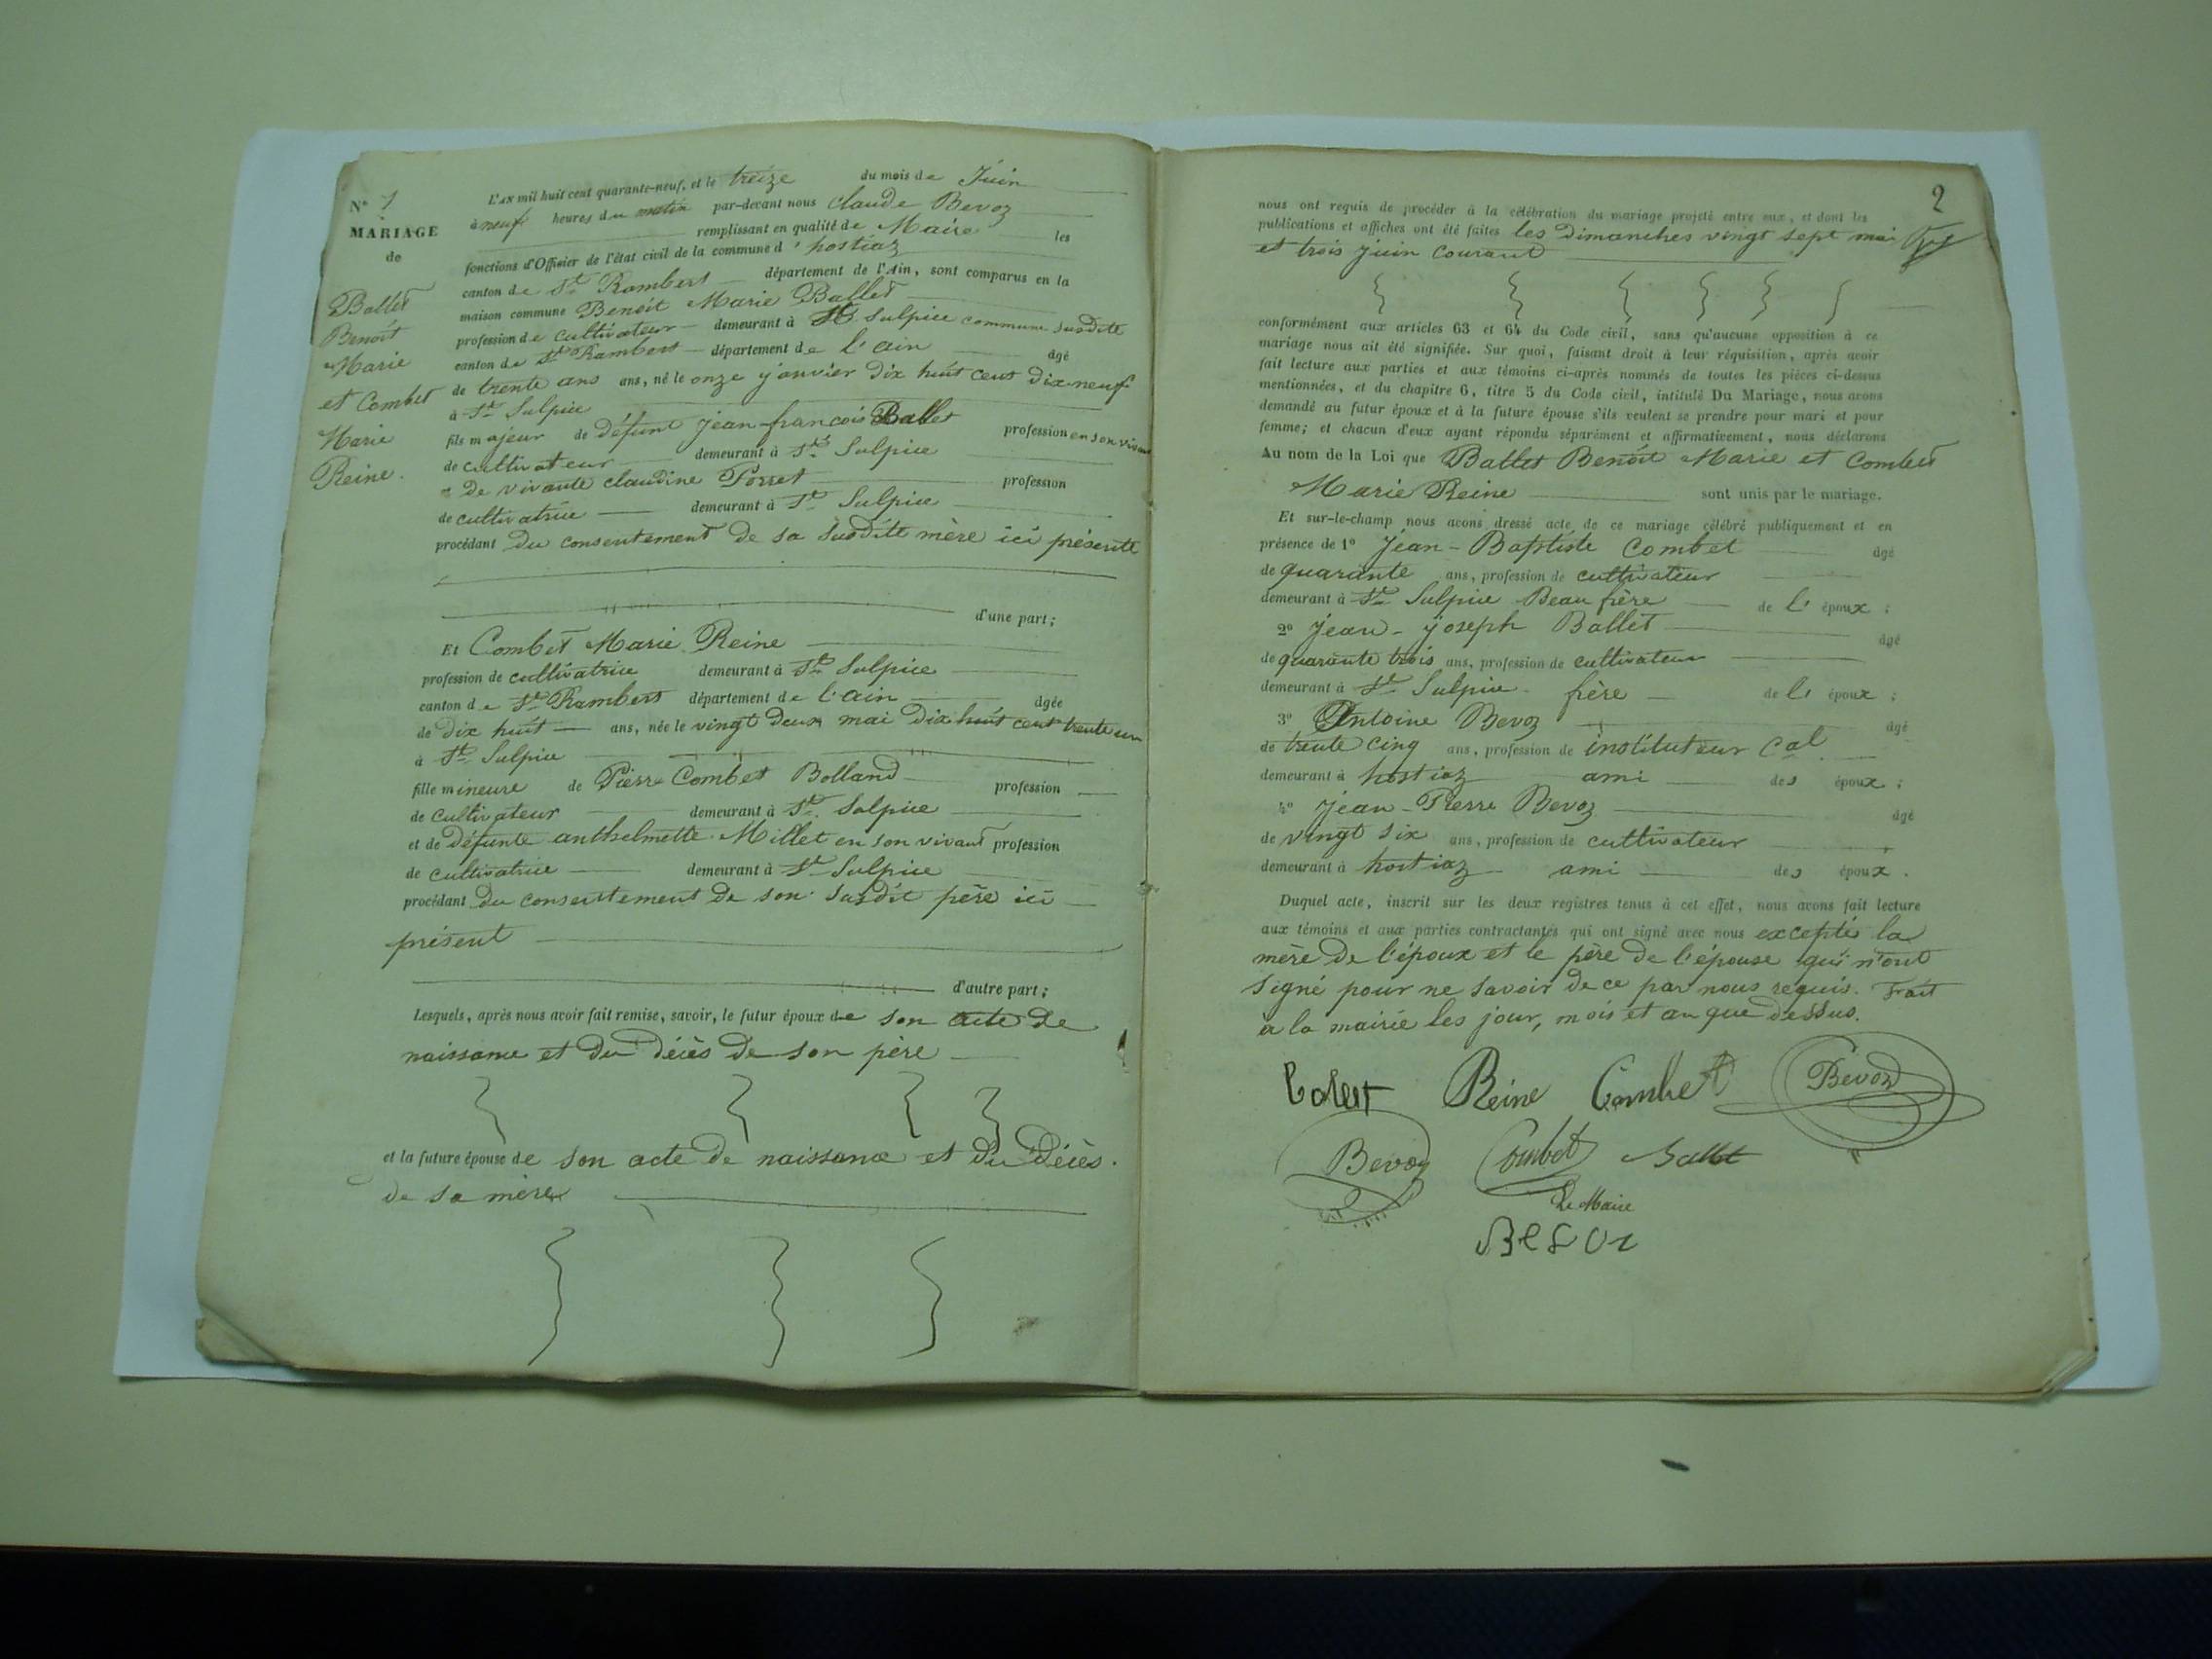 N° 1
MARIAGE
de
Ballet
Benoît
Marie
et Combet
Marie
Reine.
L'AN mil huit cent quarante-neuf, et le treize du mois de Juin
à neuf heures du matin par-devant nous Claude Bevoz
remplissant en qualité de Maire les
fonctions d'Officier de l'état civil de la commune d'hostiaz
canton de St Rambert département de l'Ain, sont comparus en la
maison commune Benoît Marie Ballet
profession de cultivateur demeurant à St Sulpice commune susdite
canton de St Rambert département de l'ain âgé
de trente ans ans, né le onze janvier dix huit cent dix neuf
à St Sulpice
fils majeur de défunt jean-françois Ballet profession en son vivant
de cultivateur demeurant à St Sulpice
de vivante claudine Porret profession
de cultivatrice demeurant à St Sulpice
procédant du consentement de sa susdite mère ici présente
d'une part;
Et Combet Marie Reine
profession de cultivatrice demeurant à St Sulpice
canton de St Rambert département de l'ain âgée
de dix huit ans, née le vingt deux mai dix huit cent trente un
à St Sulpice
fille mineure de Pierre Combet Bolland profession
de cultivateur demeurant à St Sulpice
et de défunte anthelmette Millet en son vivant profession
de cultivatrice demeurant à St Sulpice
procédant du consentement de son susdit père ici
présent
d'autre part;
Lesquels, après nous avoir fait remise, savoir, le futur époux de son acte de
naissance et du décès de son père
et la future épouse de son acte de naissance et du décès
de sa mère
2
nous ont requis de procéder à la célébration du mariage projeté entre eux, et dont les
publications et affiches ont été faites les dimanches vingt sept mai
et trois juin courant
conformément aux articles 63 et 64 du Code civil, sans qu'aucune opposition à ce
mariage nous ait été signifiée. Sur quoi, faisant droit à leur réquisition, après avoir
fait lecture aux parties et aux témoins ci-après nommés de toutes les pièces ci-dessus
mentionnées, et du chapitre 6, titre 5 du Code civil, intitulé Du Mariage, nous avons
demandé au futur époux et à la future épouse s'ils veulent se prendre pour mari et pour
femme; et chacun d'eux ayant répondu séparément et affirmativement, nous déclarons
Au nom de la Loi que Ballet Benoît Marie et Combet
Marie Reine sont unis par le mariage.
Et sur-le-champ nous avons dressé acte de ce mariage célébré publiquement et en
présence de 1° Jean-Baptiste Combet âgé
de quarante ans, profession de cultivateur
demeurant à St Sulpice Beau frère de l'époux;
2° Jean-joseph Ballet âgé
de quarante trois ans, profession de cultivateur
demeurant à St Sulpice frère de l'époux;
3° Antoine Bevoz âgé
de trente cinq ans, profession de instituteur cal
demeurant à hostiaz ami des époux;
4° Jean-Pierre Bevoz âgé
de vingt six ans, profession de cultivateur
demeurant à hostiaz ami des époux.
Duquel acte, inscrit sur les deux registres tenus à cet effet, nous avons fait lecture
aux témoins et aux parties contractantes qui ont signé avec nous exceptés la
mère de l'époux et le père de l'épouse qui n'ont
signé pour ne savoir de ce par nous requis. Fait
à la mairie les jour, mois et an que dessus.
Balet Reine Combet Bevoz
Bevoz Combet Ballet
Le Maire
Bevoz